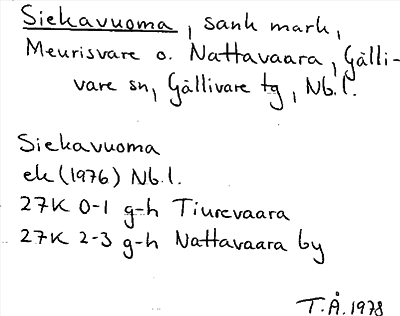 Siekavuoma, sank mark,
Meurisvare o. Nattavaara, Gälli-
vare sn, Gällivare tg, Nb.l.
Siekavuoma
ek (1976) Nb.l.
27K 0-1 g-h Tiurevaara
27K 2-3 g-h Nattavaara by
T.Å. 1978